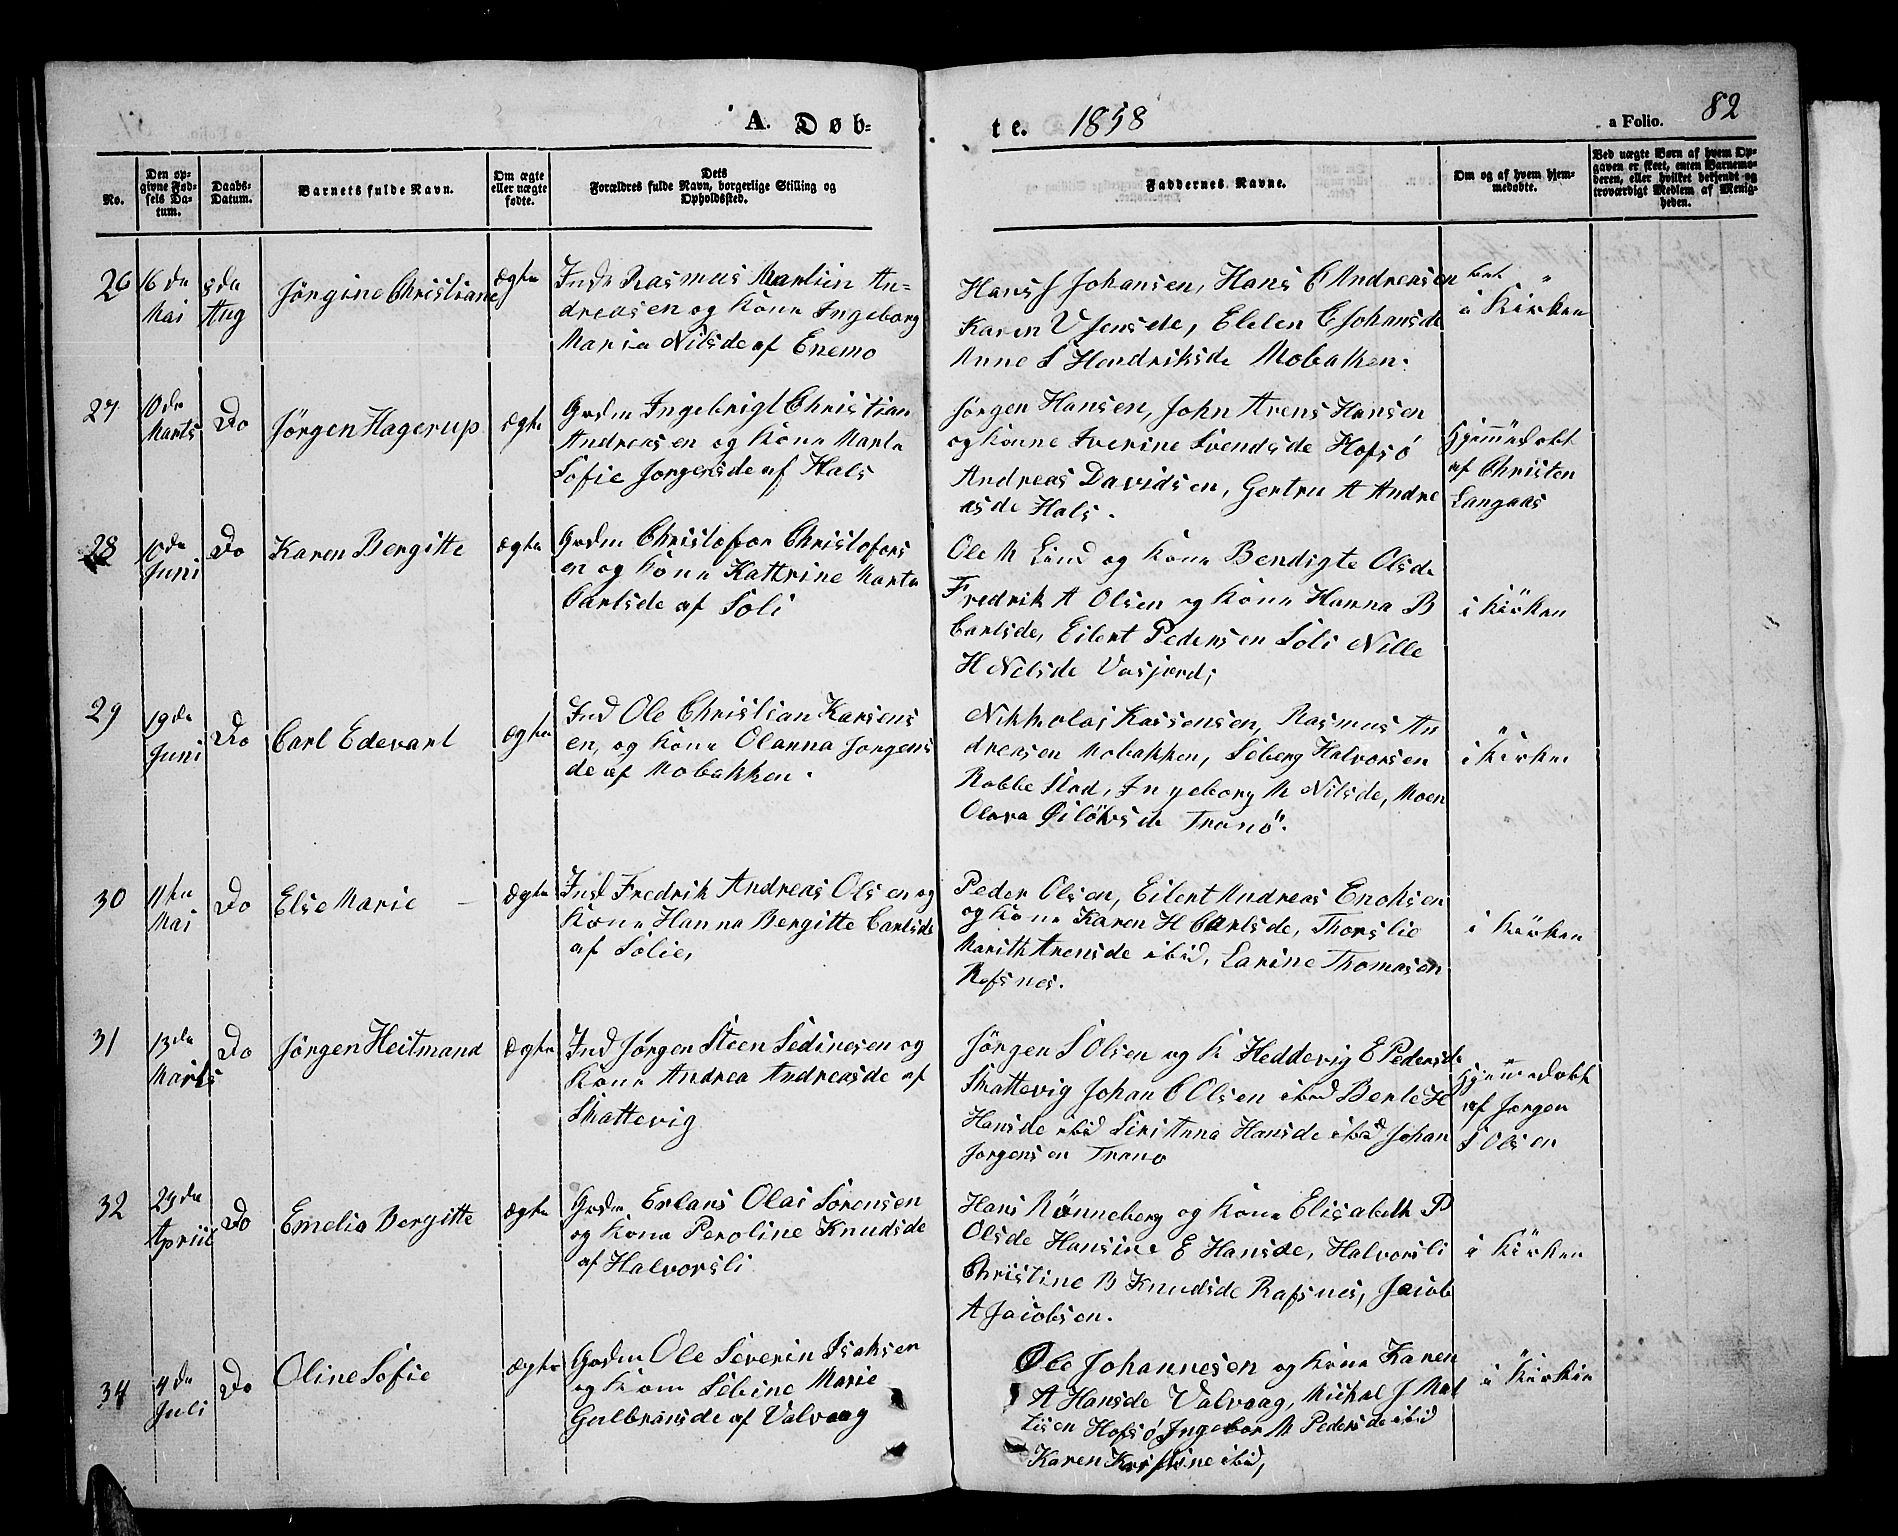 A. Døb-
te. 1858
a Folio. 82
No.
Den op-
givne Fød-
sels Da-
tum.
Daabs-
Datum.
Barnets fulde Navn.
Om ægte
eller uægte
fødte.
Dets
Forældres fulde Navn, borgerlige Stilling og
Opholdssted.
Faddernes Navne.
Om og af hvem hjem-
medøbte.
Ved uægte Børn af hvem Op-
gaven er skeet, enten Barnemo-
deren, eller hvilket bekjendt og
troværdigt Medlem af Menig-
heden.
26
16 de
Mai
8 de
Aug
Jørgine Christiane
ægte
Inds Rasmus Martin An-
dreasen og kone Ingeborg
Maria Nilsde af Enemo
Hans J Johansen, Hans C Andreasen
Karen V Jensde, Elelen C Johansde
Anne S Hendriksde Mobakken.
i Kirken
27
10 de
Marts
Do
Jörgen Hagerup
ægte
Grdm Ingebrigt Christian
Andreasen og kone Marta
Sofie Jorgensde af Hals
Jørgen Hansen, John Arens Hansen
og kone Iverine Svendsde Hofsó
Andreas Davidsen, Gertru A Andre
asde Hals.
Hjemmedøbt
af Christen
Langaas
28
10 de
Juni
Do
Karen Bergitte
ægte
Grdm Christofor Christofors
en og kone Kattrine Marta
Carlsde af Soli
Ole M Lind og kone Bendigte Olsde
Fredrik A Olsen og kone Hanna B
Carlsde, Eilert Pedersen Soli Nille
H Nilsde Vasjord;
i Kirken
29
19 de
Juni
Do
Carl Edevart
ægte
Ind Ole Christian Karsens
en, og kone Olanna Jorgens
de af Mobakken.
Nikkolai Karsensen, Rasmus An
dreasen Mobakken, Seberg Halvorsen
Robbe Stad, Ingeborg M Nilsde, Moen
Olava Tranö.
i Kirken
30
11 te
Mai
Do
Else Marie
ægte
Ind Fredrik Andreas Olsen og
kone Hanna Bergitte Carlsde
af Solie,
Peder Olsen, Eilert Andreas Enoksen
og kone Karen H Carlsde, Thorslie
Marith Arensde ibid, Larine Thomasen
Refsnes.
i Kirken
31
13 de
Marts
Do
Jørgen Heitmand
ægte
Ind Jørgen Steen Sedinesen og
kone Andrea Andreasde af
Skattevig
Jörgen S Olsen og k Heddevig E Pedersde
Skattevig Johan C Olsen ibid Berle H
Hansde ibid Siri Anna Hansde ibid Johan
Jorgensen Trano
Hjemmedøbt
af Jorgen
S Olsen
32
29 de
Apriil
Do
Emelia Bergitte
ægte
Grdm Erlans Olai Sorensen
og kone Peroline Knudsde
af Halvorsli
Hans Rönneberg og kone Elisabeth P
Olsde Hansine E Hansde, Halvorsli
Christine B Knudsde Rafsnes, Jacob
A Jacobsen.
i Kirken
34
4 de
Juli
Do
Oline Sofie
ægte
Grdm Ole Severin Isaksen
og kone Sebine Marie
Gulbransde af Valvaag
Ole Johannesen og kone Karen
A Hansde Valvaag, Mickal J Mat
tisen Hofsó, Ingebor M Pedersde ibid
Karen Kristine ibid,
i Kirken